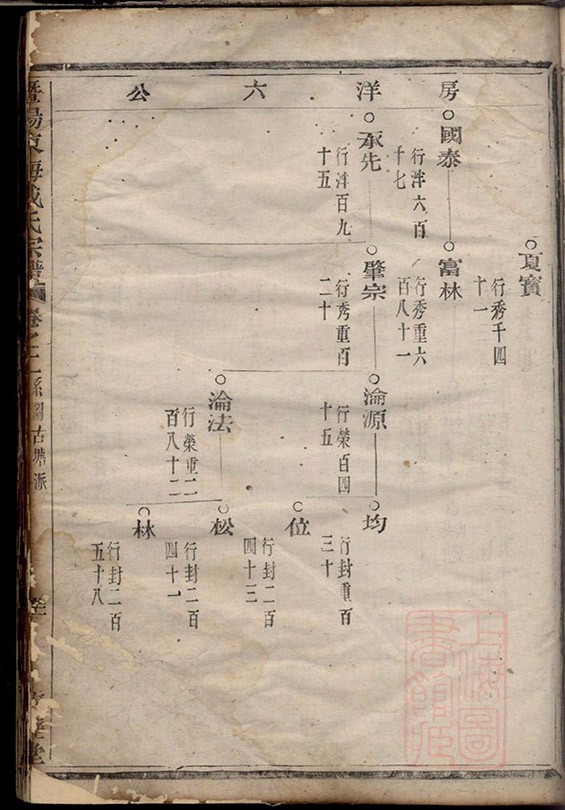 房
洋
六
公
夏寶
行秀千四
十一
國泰
行泮六百
十七
富林
行秀重六
百八十一
承先
行泮百九
十五
肇宗
行秀重百
二十
淪源
行榮百四
十五
均
行封重百
三十
位
行封二百
四十三
淪法
行榮重二
百八十二
松
行封二百
四十一
林
行封二百
五十八
暨陽
海
氏宗譜
卷之
系圖
古塘派
堂
上海圖
書館藏